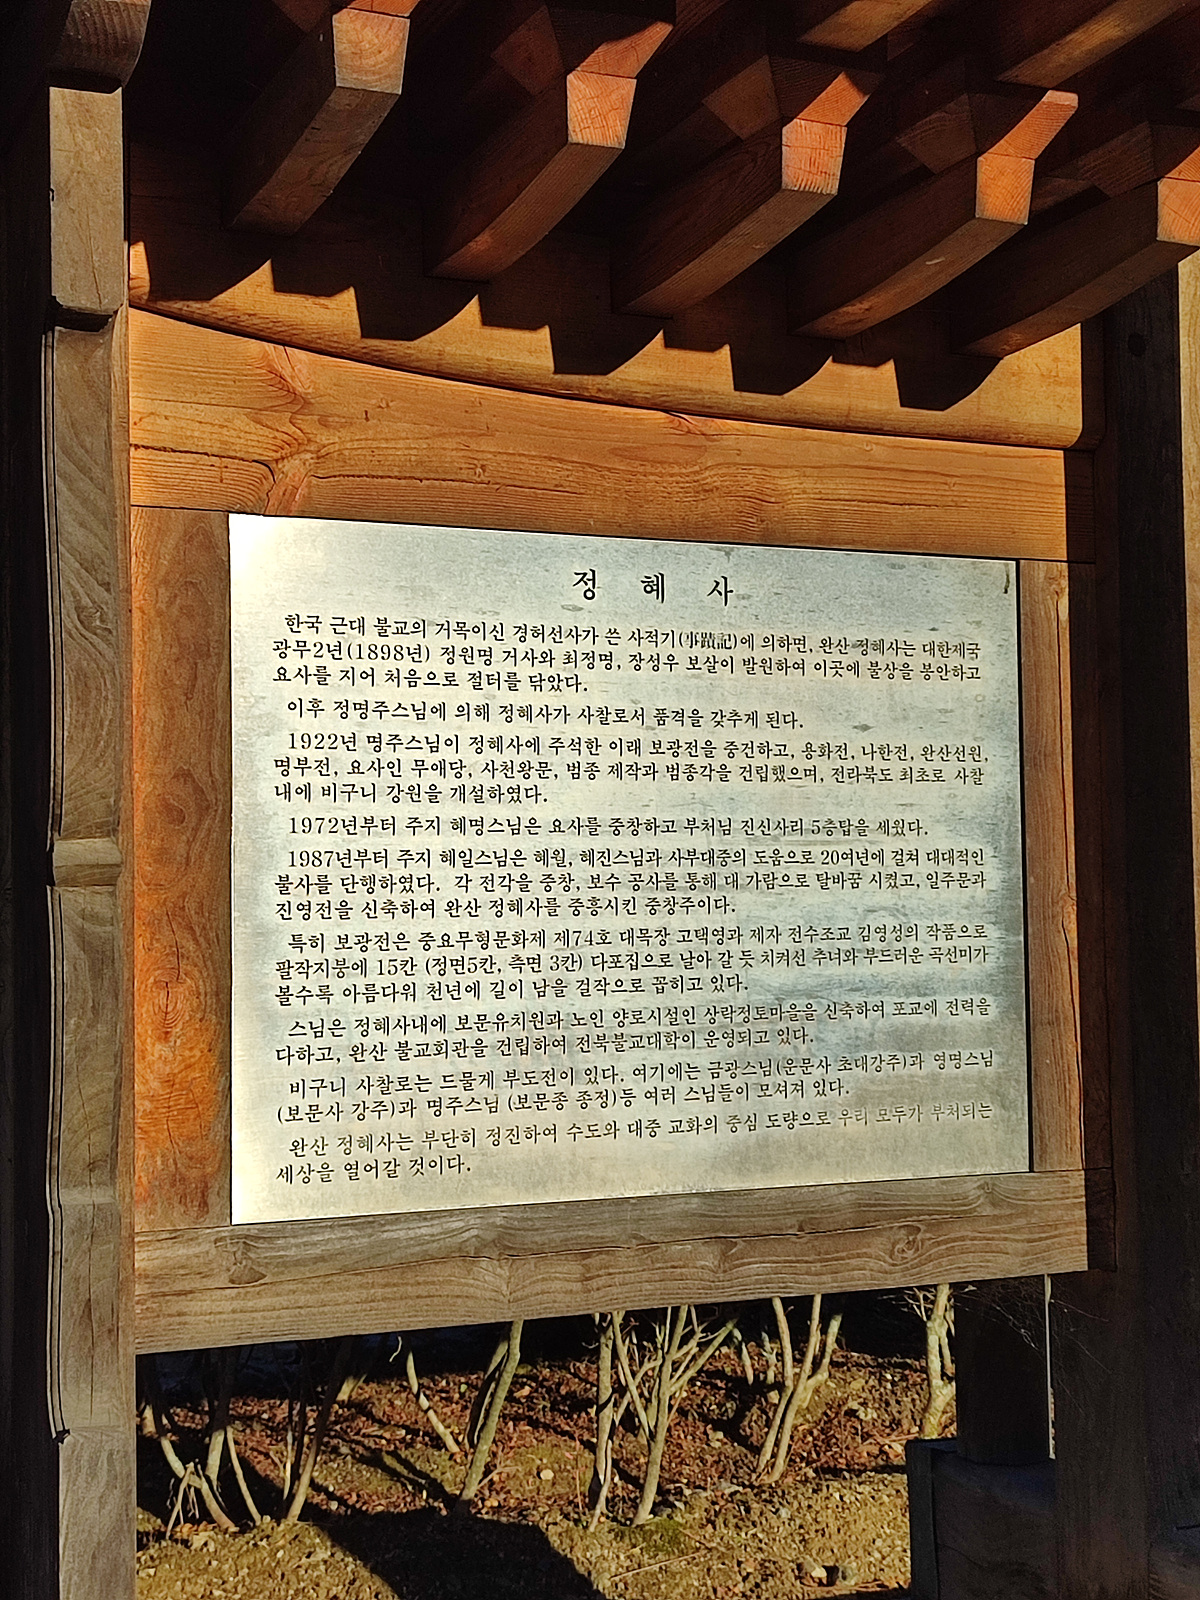 정 혜 사
한국 근대 불교의 거목이신 경허선사가 쓴 사적기(事蹟記)에 의하면, 완산 정혜사는 대한제국
광무2년(1898년) 정원명 거사와 최정명, 장성우 보살이 발원하여 이곳에 불상을 봉안하고
요사를 지어 처음으로 절터를 닦았다.
이후 정명주스님에 의해 정혜사가 사찰로서 품격을 갖추게 된다.
1922년 명주스님이 정혜사에 주석한 이래 보광전을 중건하고, 용화전, 나한전, 완산선원,
명부전, 요사인 무애당, 사천왕문, 범종 제작과 범종각을 건립했으며, 전라북도 최초로 사찰
내에 비구니 강원을 개설하였다.
1972년부터 주지 혜명스님은 요사를 중창하고 부처님 진신사리 5층탑을 세웠다.
1987년부터 주지 혜일스님은 혜원, 혜진스님과 사부대중의 도움으로 20여년에 걸쳐 대대적인
불사를 단행하였다. 각 전각을 중창, 보수 공사를 통해 대 가람으로 탈바꿈 시켰고, 일주문과
진영전을 신축하여 완산 정혜사를 중흥시킨 중창주이다.
특히 보광전은 중요무형문화제 제74호 대목장 고택영과 제자 전수조교 김영성의 작품으로
팔작지붕에 15칸 (정면5칸, 측면 3칸) 다포집으로 날아 갈 듯 치켜선 추녀와 부드러운 곡선미가
볼수록 아름다워 천년에 길이 남을 걸작으로 꼽히고 있다.
스님은 정혜사내에 보문유치원과 노인 양로시설인 상락정토마을을 신축하여 포교에 전력을
다하고, 완산 불교회관을 건립하여 전북불교대학이 운영되고 있다.
비구니 사찰로는 드물게 부도전이 있다. 여기에는 금광스님(운문사 초대강주)과 영명스님
(보문사 강주)과 명주스님 (보문종 종정)등 여러 스님들이 모셔져 있다.
완산 정혜사는 부단히 정진하여 수도와 대중 교화의 중심 도량으로 우리 모두가 부처되는
세상을 열어갈 것이다.